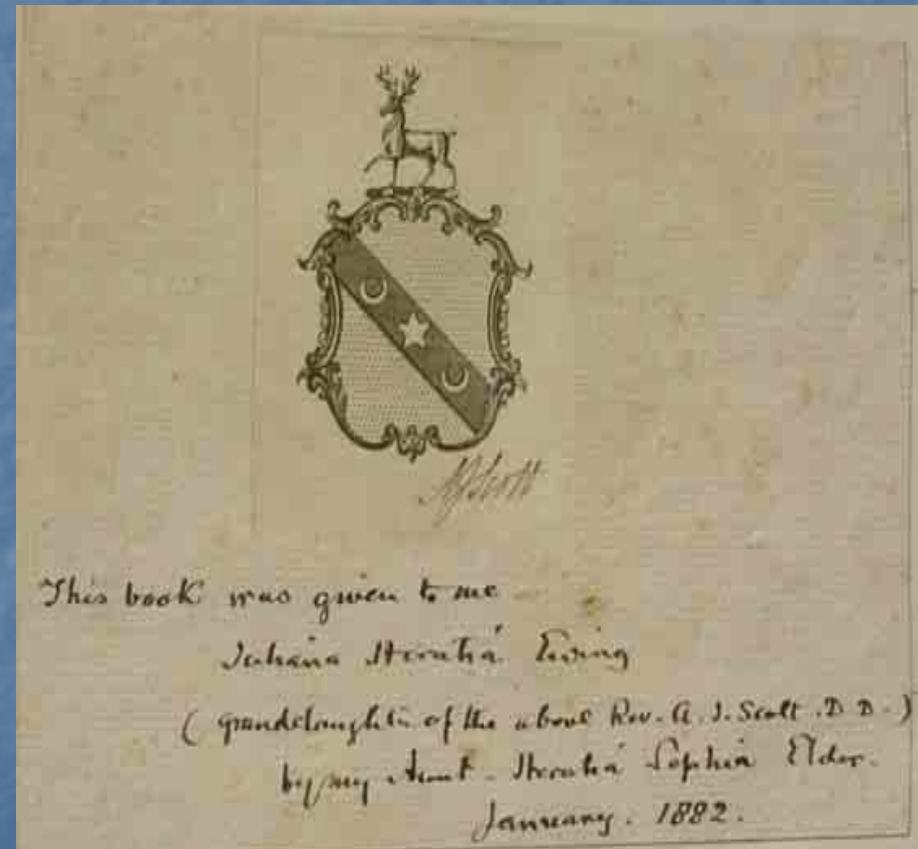 AJScott
This book was given to me
Juliana Horatia Ewing
(granddaughter of the above Rev. A. J. Scott. D. D.)
by my Aunt - Horatia Sophia Elder.
January. 1882.